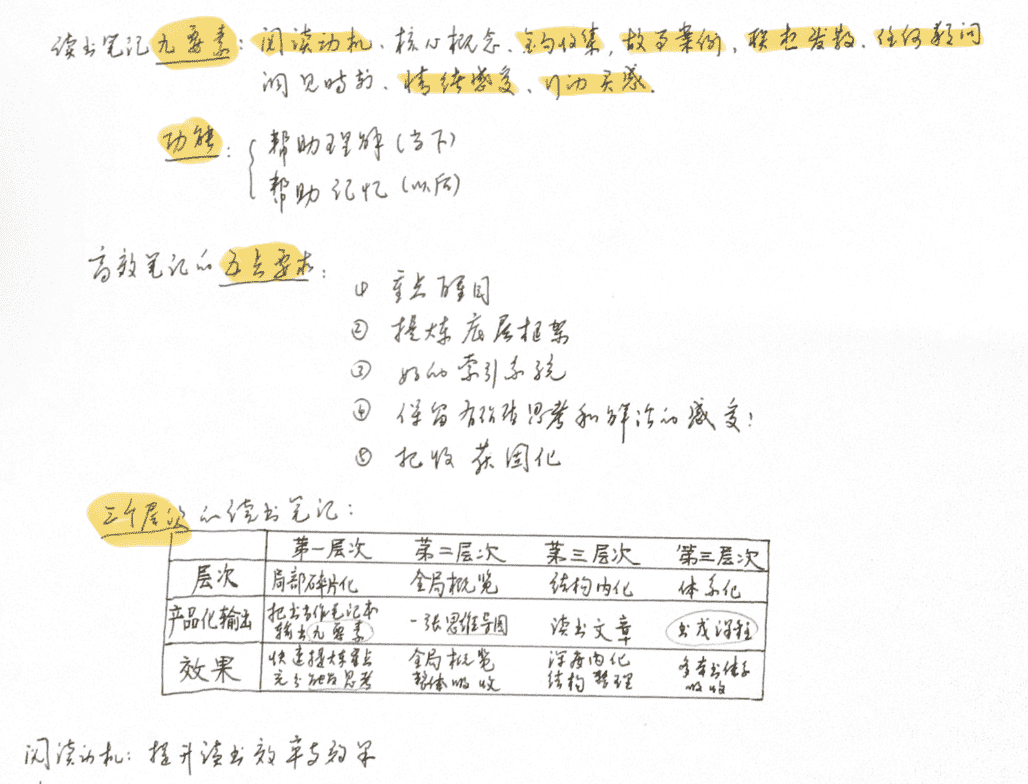 读书笔记九要素：阅读动机、核心概念、金句收集，故事案例，联想发散、任何疑问
洞见时刻、情绪感受、行动灵感.
功能：帮助理解（当下）
帮助记忆（以后）
高效笔记的五点要求：
① 重点醒目
② 提炼底层框架
③ 好的索引系统
④ 保留有价值思考和鲜活的感受；
⑤ 把收获固化
三个层次的读书笔记：
第一层次 第二层次 第三层次 第三层次
层次 局部碎片化 全局概览 结构内化 体系化
产品化输出 把书当作笔记本 一张思维导图 读书文章 书或课程
输出九要素
效果 快速提炼重点 全局概览 深度内化
充分地思考 整体吸收 结构整理 吸收
阅读动机：提升读书效率与效果